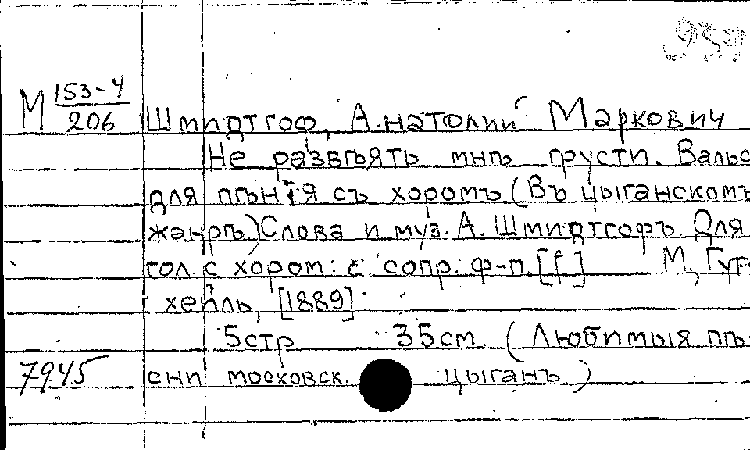 М 153-4/206
Шмидтгоф, Анатолий Маркович
Не развѣять мнѣ грусти. Вальс
для пѣнія съ хоромъ (Въ цыганскомъ
жанрѣ) Слова и муз. А. Шмидтгофъ. Для
гол. с хором: с сопр. ф-п. [f] М, Гут
хейль, [1889].
5стр 35см (Любимыя пѣ
7945 сни московск. цыганъ)